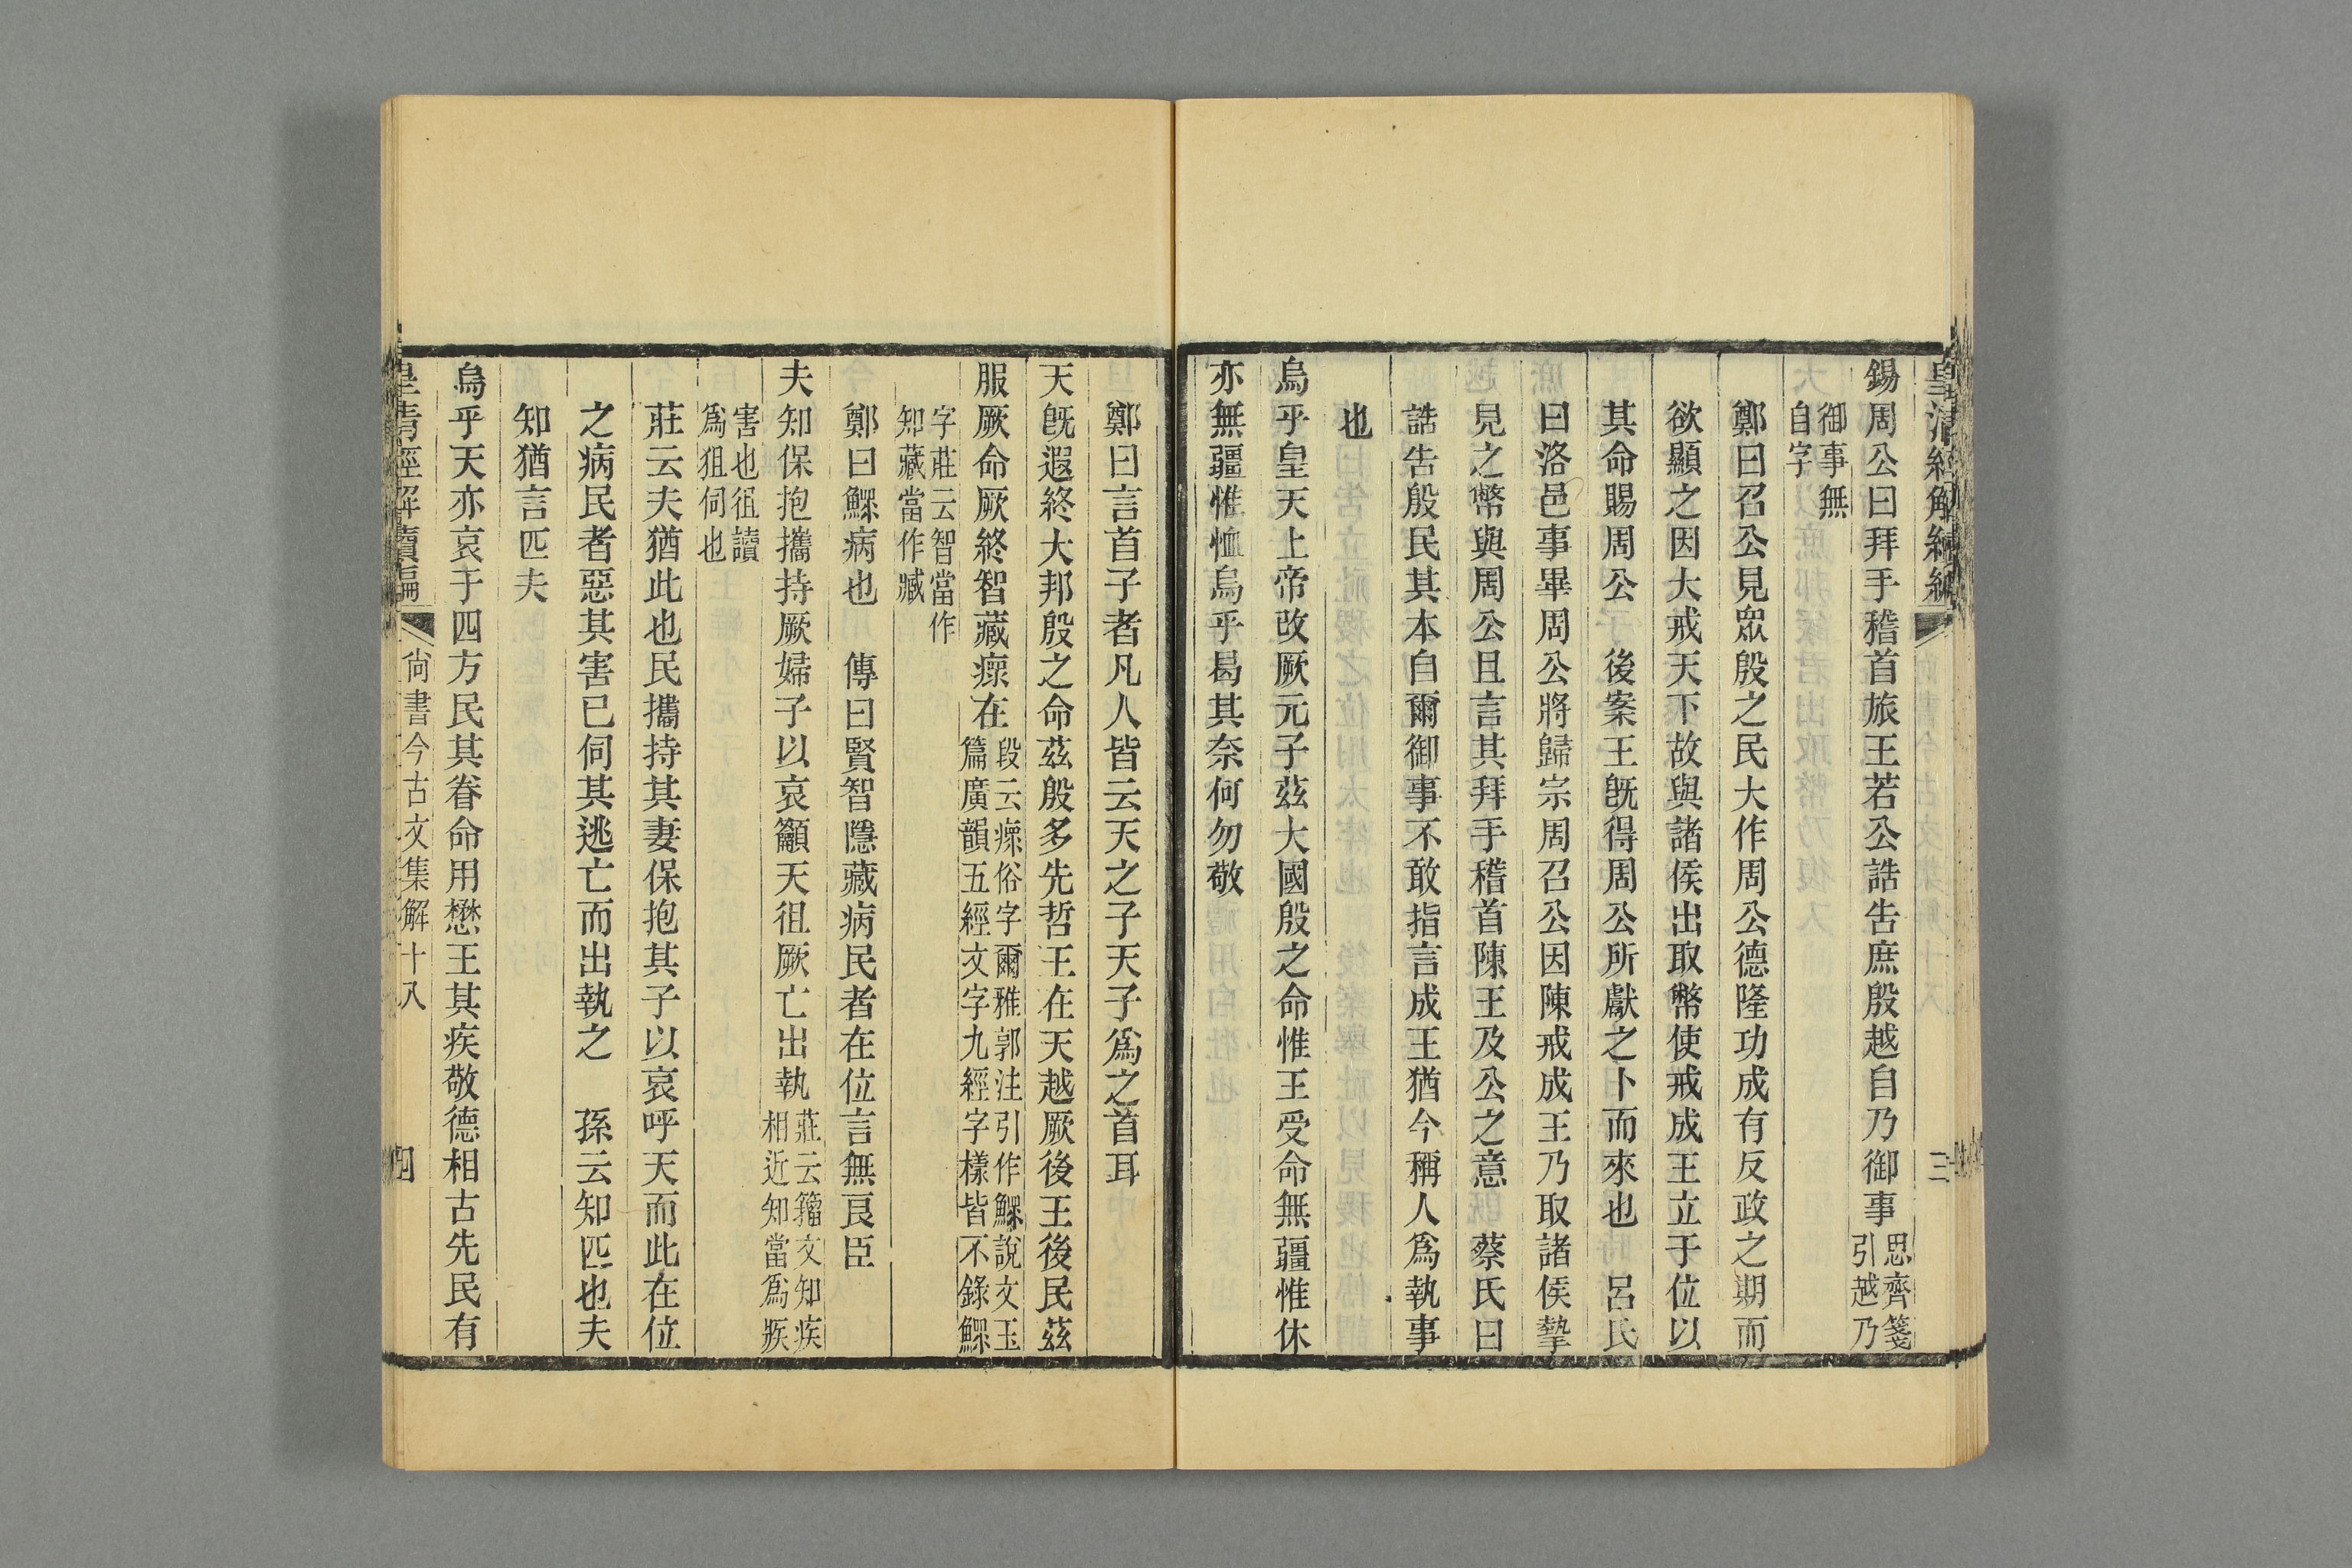 皇清經解續編
三
錫周公曰拜手稽首旅王若公誥告庶殷越自乃御事思齊箋引越乃
御事無自字
鄭曰召公見眾殷之民大作周公德隆功成有反政之期而
欲顯之因大戒天下故與諸侯出取幣使戒成王立于位以
其命賜周公　後案王既得周公所獻之卜而來也　呂氏
曰洛邑事畢周公將歸宗周召公因陳戒成王乃取諸侯摯
見之幣與周公且言其拜手稽首陳王及公之意　蔡氏曰
誥告殷民其本自爾御事不敢指言成王猶今稱人為執事
也
烏乎皇天上帝改厥元子茲大國殷之命惟王受命無疆惟休
亦無疆惟恤烏乎曷其奈何勿敬
鄭曰言首子者凡人皆云天之子天子爲之首耳
天既遐終大邦殷之命茲殷多先哲王在天越厥後王後民茲
服厥命厥終智藏瘝在段云瘝俗字爾雅郭注引作鰥說文玉篇廣韻五經文字九經字樣皆不錄鰥
字莊云智當作知藏當作臧
鄭曰鰥病也　傳曰賢智隱藏病民者在位言無良臣
夫知保抱攜持厥婦子以哀籲天徂厥亡出執莊云籀文知疾相近知當爲㾏
害也徂讀爲狙伺也
莊云夫猶此也民攜持其妻保抱其子以哀呼天而此在位
之病民者惡其害已伺其逃亡而出執之　孫云知匹也夫
知猶言匹夫
烏乎天亦哀于四方民其眷命用懋王其疾敬德相古先民有
皇清經解續編
尚書今古文集解十八
四